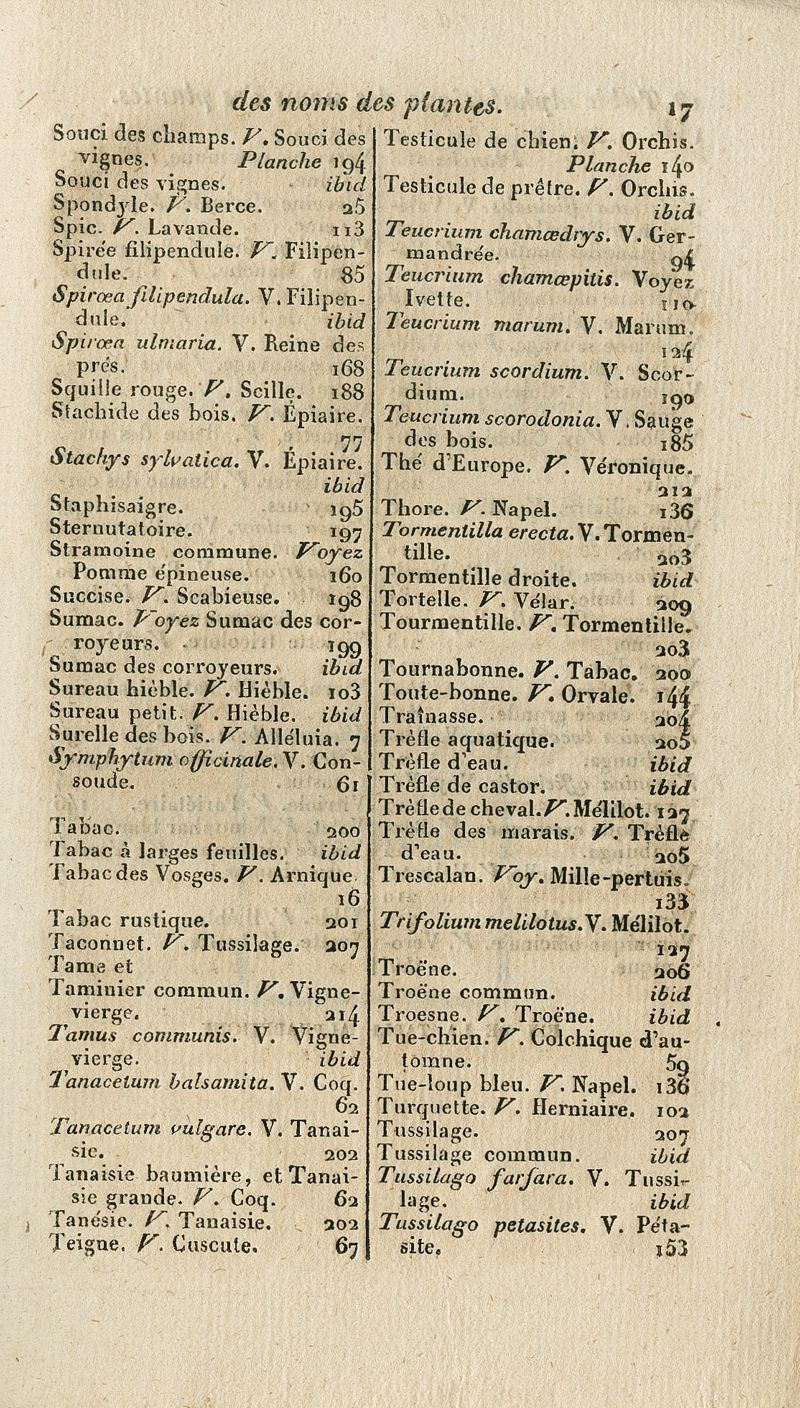 des noms des plantes.
17
Souci des champs. V. Souci des
vignes. Planche 194
Souci des vignes. ibid
Spondyle. V. Berce. 25
Spic. V. Lavande. 113
Spirée filipendule. V. Filipen-
dule. 85
Spirœa filipendula. V. Filipen-
dule. ibid
Spirœa ulmaria. V. Reine des
prés. 168
Squille rouge. V. Scille. 188
Stachide des bois. V. Épiaire.
77
Stachys sylvatica. V. Épiaire.
ibid
Staphisaigre. 195
Sternutatoire. 197
Stramoine commune. Voyez
Pomme épineuse. 160
Succise. V. Scabieuse. 198
Sumac. Voyez Sumac des cor-
royeurs. 199
Sumac des corroyeurs. ibid
Sureau hièble. V. Hièble. 103
Sureau petit. V. Hièble. ibid
Surelle des bois. V. Alléluia. 7
Symphytum officinale. V. Con-
soude. 61
Tabac. 200
Tabac à larges feuilles. ibid
Tabac des Vosges. V. Arnique
16
Tabac rustique. 201
Taconnet. V. Tussilage. 207
Tame et
Taminier commun. V. Vigne-
vierge. 214
Tamus communis. V. Vigne-
vierge. ibid
Tanacetum balsamita. V. Coq.
62
Tanacetum vulgare. V. Tanai-
sie. 202
Tanaisie baumière, et Tanai-
sie grande. V. Coq. 62
Tanésie. V. Tanaisie. 202
Teigne. V. Cuscute. 67
Testicule de chien. V. Orchis.
Planche 140
Testicule de prêtre. V. Orchis.
ibid
Teucrium chamœdrys. V. Ger-
mandrée. 94
Teucrium chamœpitis. Voyez
Ivette. 110
Teucrium marum. V. Marum.
124
Teucrium scordium. V. Scor-
dium. 190
Teucrium scorodonia. V. Sauge
des bois. 185
Thé d'Europe. V. Véronique.
212
Thore. V. Napel. 136
Tormentilla erecta. V. Tormen-
tille. 203
Tormentille droite. ibid
Tortelle. V. Vélar. 209
Tourmentille. V. Tormentille.
203
Tournabonne. V. Tabac. 200
Toute-bonne. V. Orvale. 144
Traînasse. 204
Trèfle aquatique. 205
Trèfle d'eau. ibid
Trèfle de castor. ibid
Trèfle de cheval. V. Mélilot. 127
Trèfle des marais. V. Trèfle
d'eau. 205
Trescalan. Voy. Mille-pertuis.
133
Trifolium melilotus. V. Mélilot.
127
Troëne. 206
Troëne commun. ibid
Troesne. V. Troëne. ibid
Tue-chien. V. Colchique d'au-
tomne. 59
Tue-loup bleu. V. Napel. 136
Turquette. V. Herniaire. 102
Tussilage. 207
Tussilage commun. ibid
Tussilago farfara. V. Tussi-
lage. ibid
Tussilago petasites. V. Péta-
site. 153